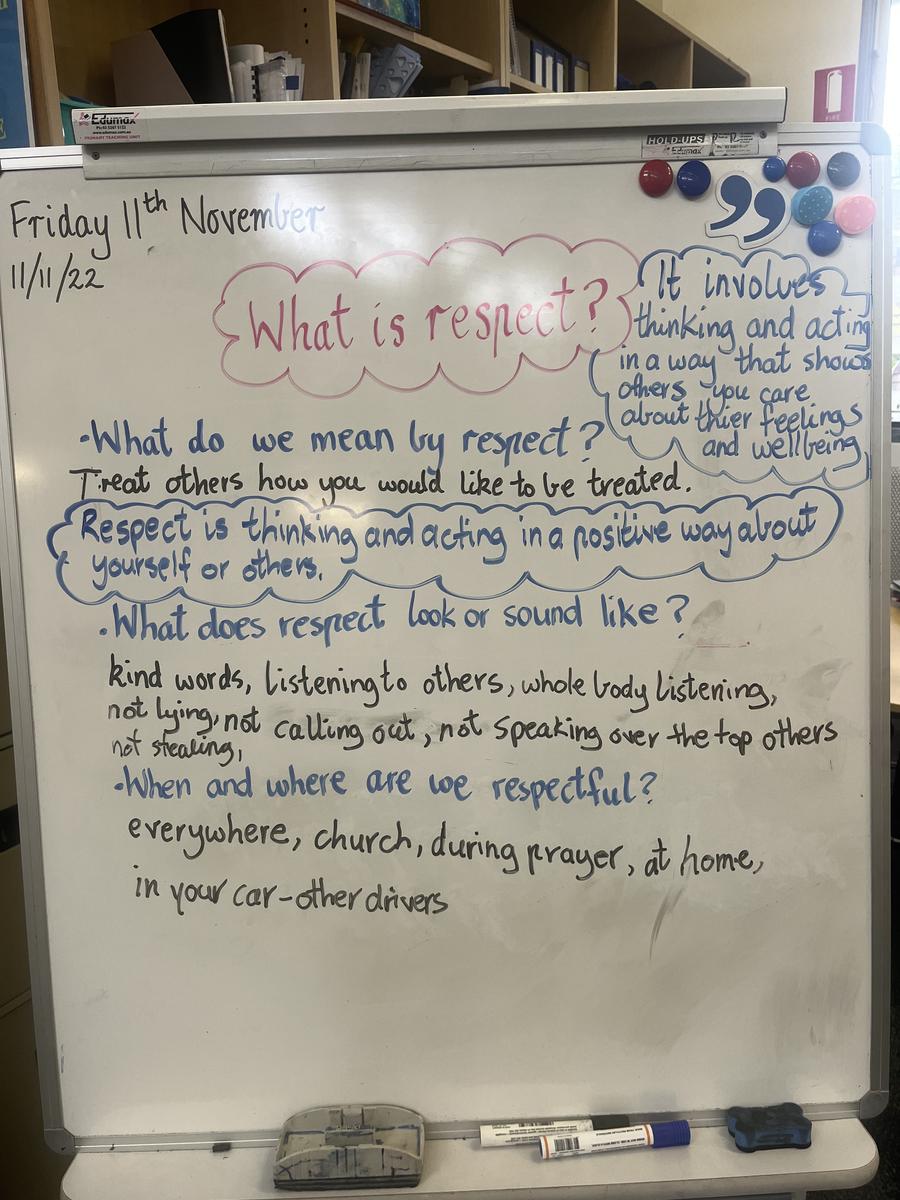 Edumax
PRIMARY TEACHING UNIT
HOLD-UPS
Edumax
FIRE
Friday 11th November
11/11/22
What is respect?
It involves
thinking and acting
in a way that shows
others you care
about thier feelings
and wellbeing
•What do we mean by respect?
Treat others how you would like to be treated.
Respect is thinking and acting in a positive way about
yourself or others.
•What does respect look or sound like?
kind words, listening to others, whole body listening,
not lying, not calling out, not speaking over the top others
not stealing,
•When and where are we respectful?
everywhere, church, during prayer, at home,
in your car-other drivers